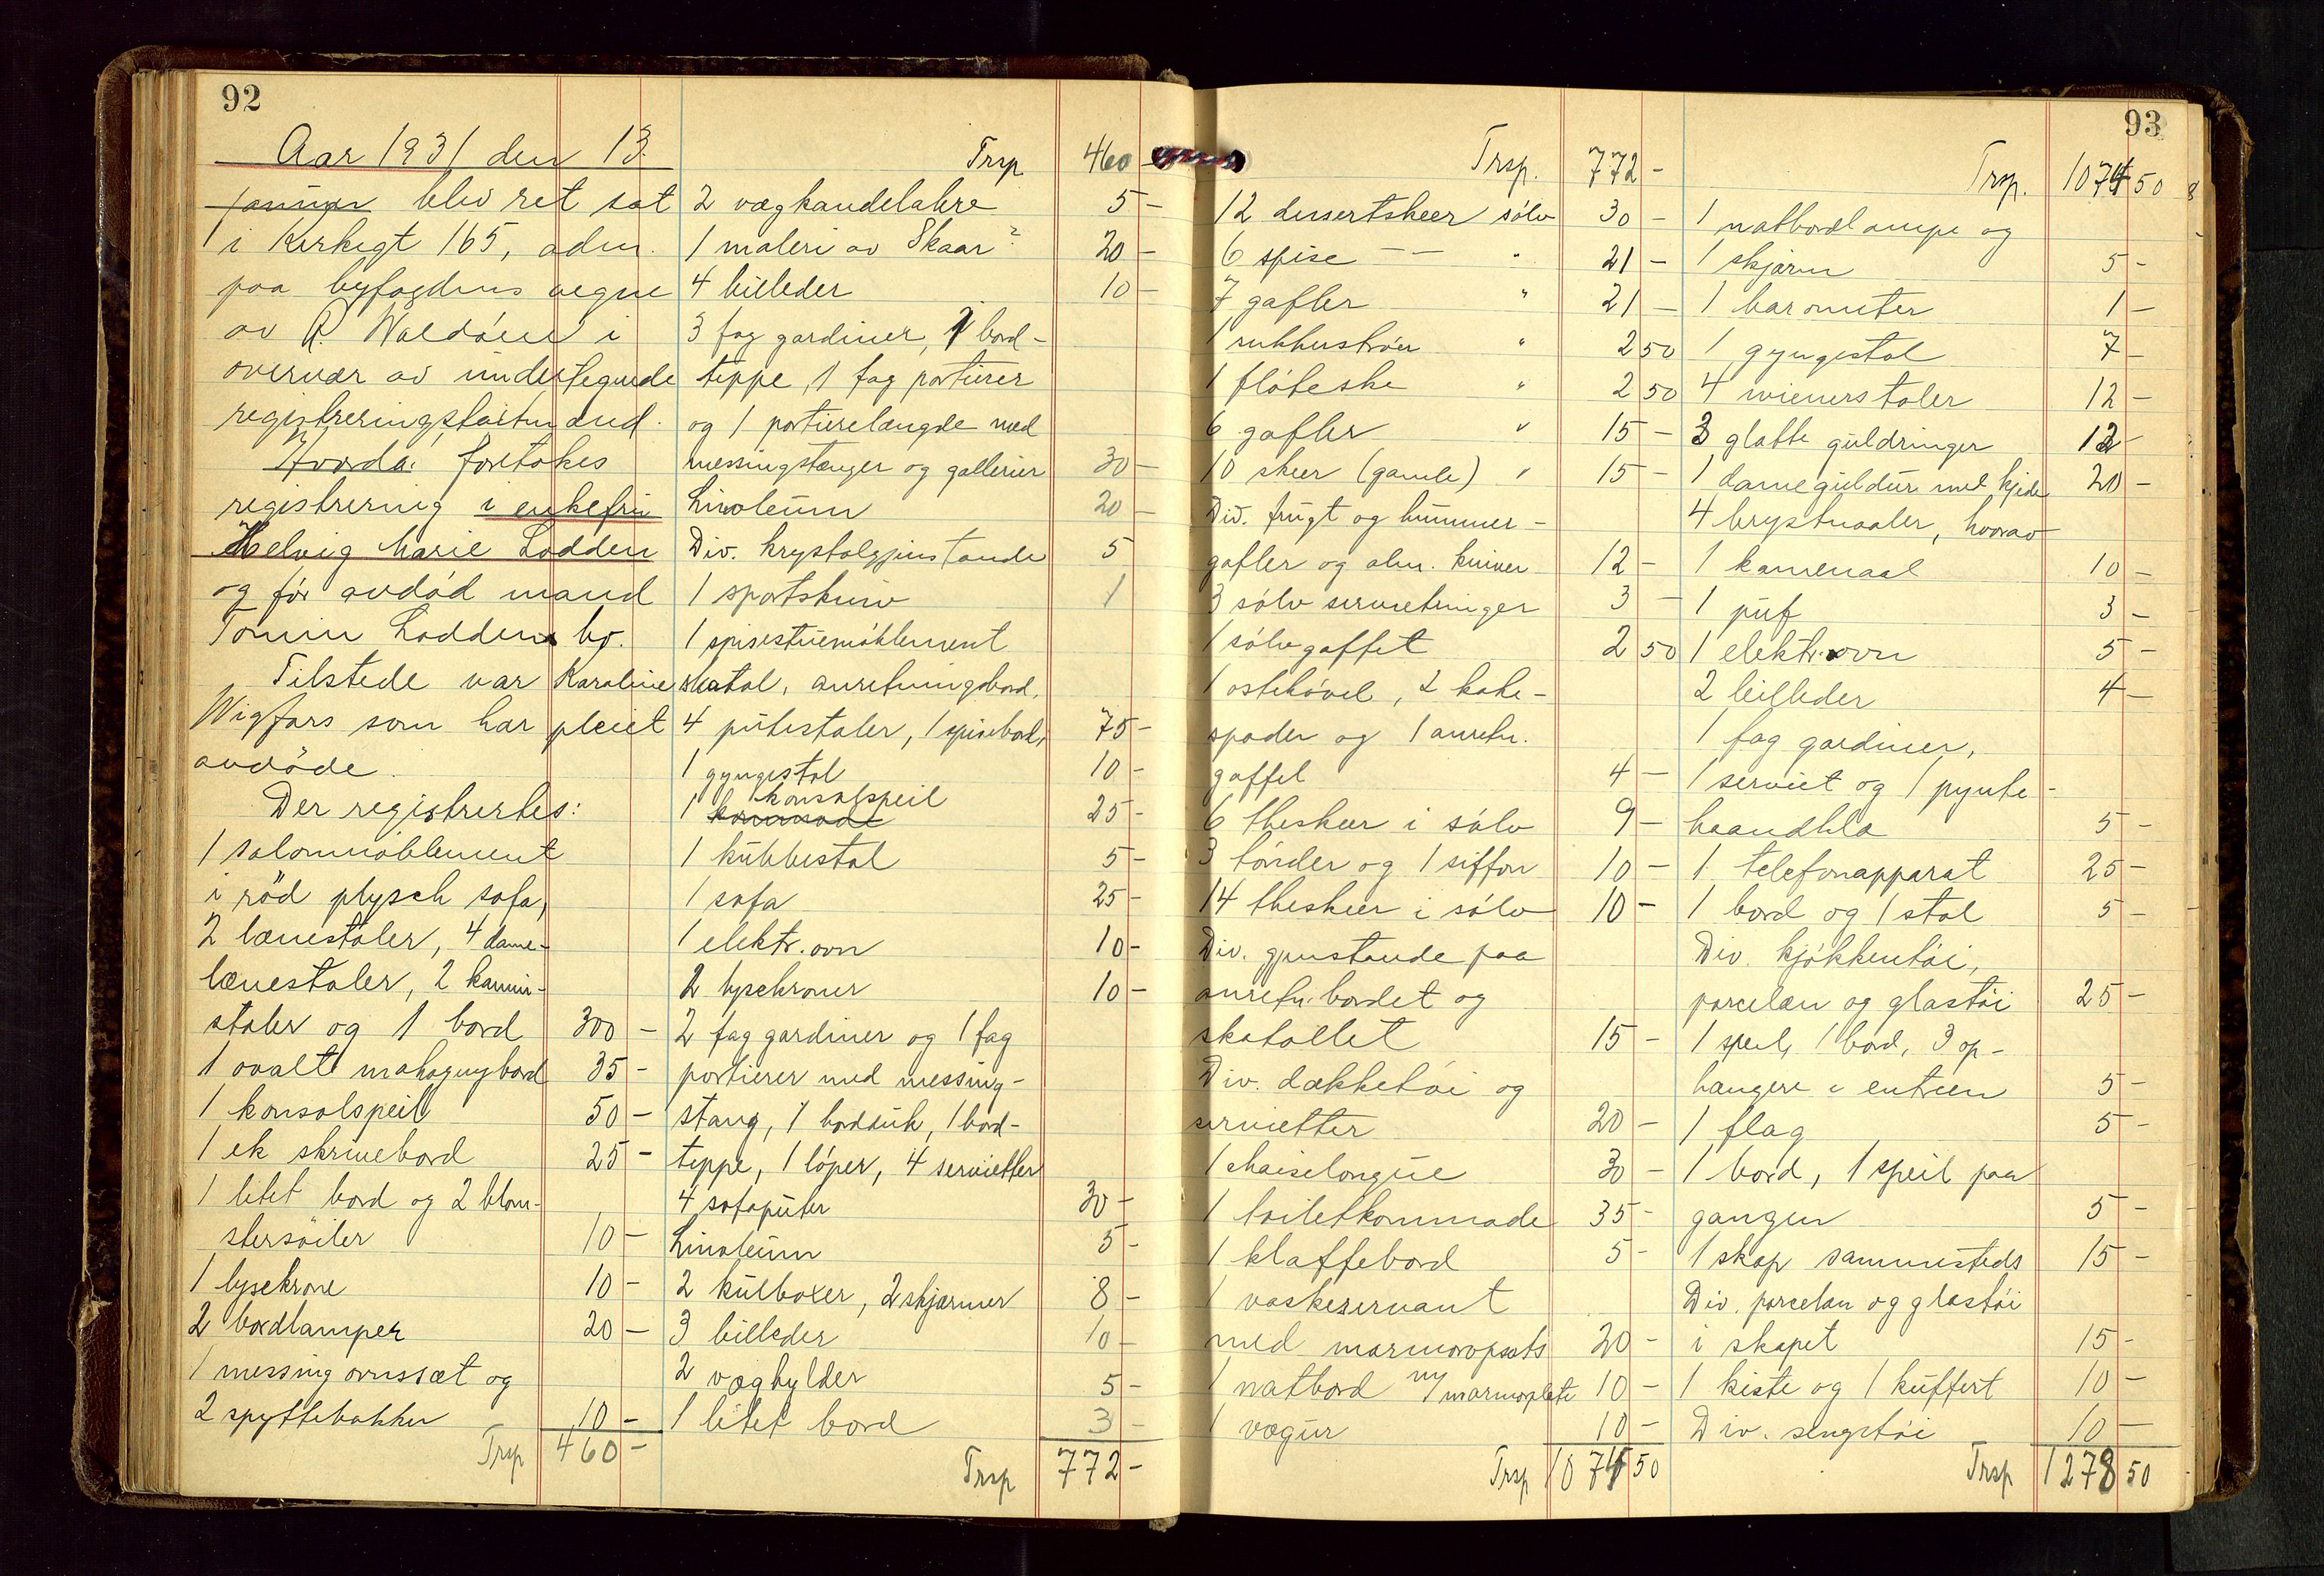 92
Aar 1931 den 13.
januar blev ret sat
i Kirkegt 165, adm.
paa byfogdens vegne
av A. Waldöen i
overvær av undertegnede
registreringsforstm and.
Hvorda: foretokes
registrering i enkefru
Helvig Marie Lodden
og før avdød mand
Tomin Loddens bo.
Tilstede var Karoline
Wigfars som har pleiet
avdøde.
Der registrertes:
1 salonmøblement
i rød plysch sofa,
2 lænestoler, 4 dame-
lænestoler, 2 kamin-
stoler og 1 bord 300 -
1 ovalt mahognybord 35 -
1 konsolspeil 50 -
1 ek skrivebord 25 -
1 litet bord og 2 blom-
stersøiler 10 -
1 lysekrone 10 -
2 bordlamper 20 -
1 messing ovnssæt og
2 spyttebakker 10 -
Trsp 460 -
Trsp 460 -
2 vægkandelabre 5 -
1 maleri av Skaar? 20 -
4 billeder 10 -
3 fag gardiner, 1 bord-
teppe, 1 fag portierer
og 1 portierelængde med
messingstænger og gallerier 30 -
Linoleum 20 -
Div. krystalgjenstande 5
1 sportskniv 1
1 spisestuemøblement
skatol, anretningsbord,
4 putestoler, 1 spisebord, 75 -
1 gyngestol 10 -
1 kommode konsolspeil 25 -
1 kubbestol 5 -
1 sofa 25 -
1 elektr. ovn 10 -
2 lysekroner 10 -
2 fag gardiner og 1 fag
portierer med messing-
stang, 1 bordduk, 1 bord-
teppe, 1 løper, 4 servietter
4 sofaputer 30 -
Linoleum 5 -
2 kulboxer, 2 skjærmer 8 -
3 billeder 10 -
2 væghylder 5 -
1 litet bord 3 -
Trsp 772 -
93
Trsp. 772 -
12 dessertskeer sølv 30 -
6 spise — — " 21 -
7 gafler " 21 -
1 sukkerstrøer " 2 50
1 fløteske " 2 50
6 gafler " 15 -
10 skeer (gamle) " 15 -
Div. frugt og hummer-
gafler og alm. kniver 12 -
3 sølv servietringer 3 -
1 sølvgaffel 2 50
1 ostehøvel, 2 kake-
spader og 1 anretn.
gaffel 4 -
6 theskeer i sølv 9 -
3 tønder og 1 siffon 10 -
14 theskeer i sølv 10 -
Div. gjenstande paa
anretn. bordet og
skatollet 15 -
Div. dækketøi og
servietter 20 -
1 chaiselongue 30 -
1 toiletkommode 35 -
1 klaffebord 5 -
1 vaskeservant
med marmoropsats 20 -
1 natbord m/marmorplate 10 -
1 vægur 10 -
Trsp 1074 50
Trsp. 1074 50
1 natbordlampe og
1 skjærm 5 -
1 barometer 1 -
1 gyngestol 7 -
4 wienerstoler 12 -
3 glatte guldringer 12 -
1 dameguldur med kjede 20 -
4 brystnaaler, hvorav
1 kamenaal 10 -
1 puf 3 -
1 elektr. ovn 5 -
2 billeder 4 -
1 fag gardiner,
1 serviet og 1 pynte-
haandklæ 5 -
1 telefonapparat 25 -
1 bord og 1 stol 5 -
Div. kjøkkentøi,
porcelæn og glastøi 25 -
1 speil, 1 bord, 3 op-
hængere i entreen 5 -
1 flag 5 -
1 bord, 1 speil paa
gangen 5 -
1 skap sammesteds 15 -
Div. porcelæn og glastøi
i skapet 15 -
1 kiste og 1 kuffert 10 -
Div. sengetøi 10 -
Trsp 1278 50